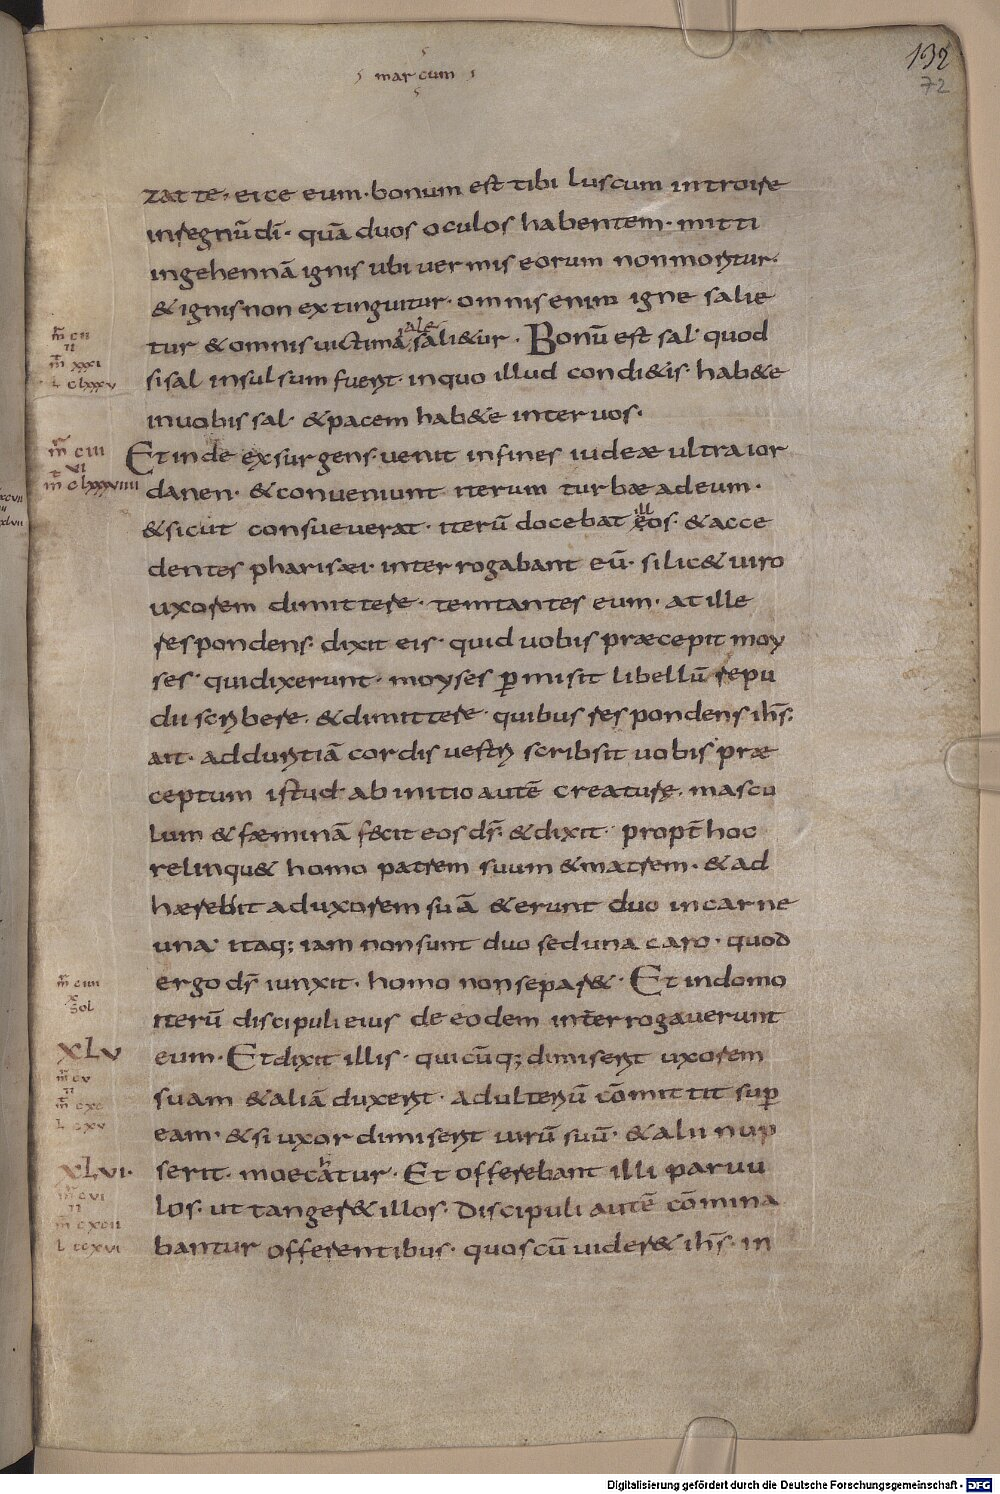 marcum
132
72
zat te· eice eum· bonum est tibi luscum introire
inregnū dī· quā duos oculos habentem· mitti
ingehennā ignis ubi vermis eorum nonmoritur·
& ignis non extinguitur· omnis enim igne salie
sale
tur & omnis uictima sali&ur· Bonū est sal· quod
si sal insulsum fuerit· inquo illud condi&is· hab&e
inuobis sal· & pacem hab&e inter uos·
Et inde exsurgens uenit infines iudeæ ultra ior
danen· & conueniunt iterum turbæ adeum·
ill
& sicut consueverat· iterū docebat eos· & acce
dentes pharisæi· interrogabant eū· si lic& uiro
uxorem dimittere· temtantes eum· at ille
respondens· dixit eis· quid uobis præcepit moy
ses· qui dixerunt· moyses p̄misit libellū repu
dii scribere· & dimittere· quibus respondens ih̄s·
ait· ad duritiā cordis vestri scribsit uobis præ
ceptum istud· ab initio autē creature· mascu
lum & fæminā fecit eos ds̄· & dixit· propt̄ hoc
relinqu& homo patrem suum & matrem· & ad
hærebit ad uxorem suā & erunt duo in carne
una· itaq; iam non sunt duo sed una caro· quod
ergo ds̄ iunxit· homo non separ&· Et indomo
iterū discipuli eius de eodem interrogaverunt
eum· Et dixit illis· quicūq; dimiserit uxorem
suam & aliā duxerit· adulteriū cōmittit sup̄
eam· & si uxor dimiserit uirū suū· & alii nup
h
serit· moecatur· Et offerebant illi paruu
los· ut tanger& illos· Discipuli autē cōmina
bantur offerentibus· quos cū uider& ih̄s· in
m̄ cii
ii
m̄ xxxi
l clxxxv
m̄ ciii
vi
m̄ clxxxviiii
m̄ ciiii
x
sol
XLV
m̄ cv
ii
l cxv
XLVI·
m̄ cvi
ii
m̄ cxcii
l ccxvi
Digitalisierung gefördert durch die Deutsche Forschungsgemeinschaft - DFG